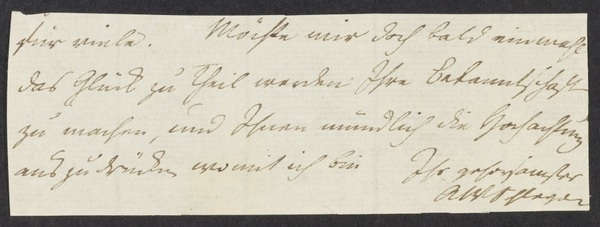 für viele. Möchte mir doch bald einmahl
das Glück zu Theil werden Ihre Bekanntschaft
zu machen, und Ihnen mündlich die Hochachtung
auszudrücken womit ich bin Ihr gehorsamster
AWSchlegel